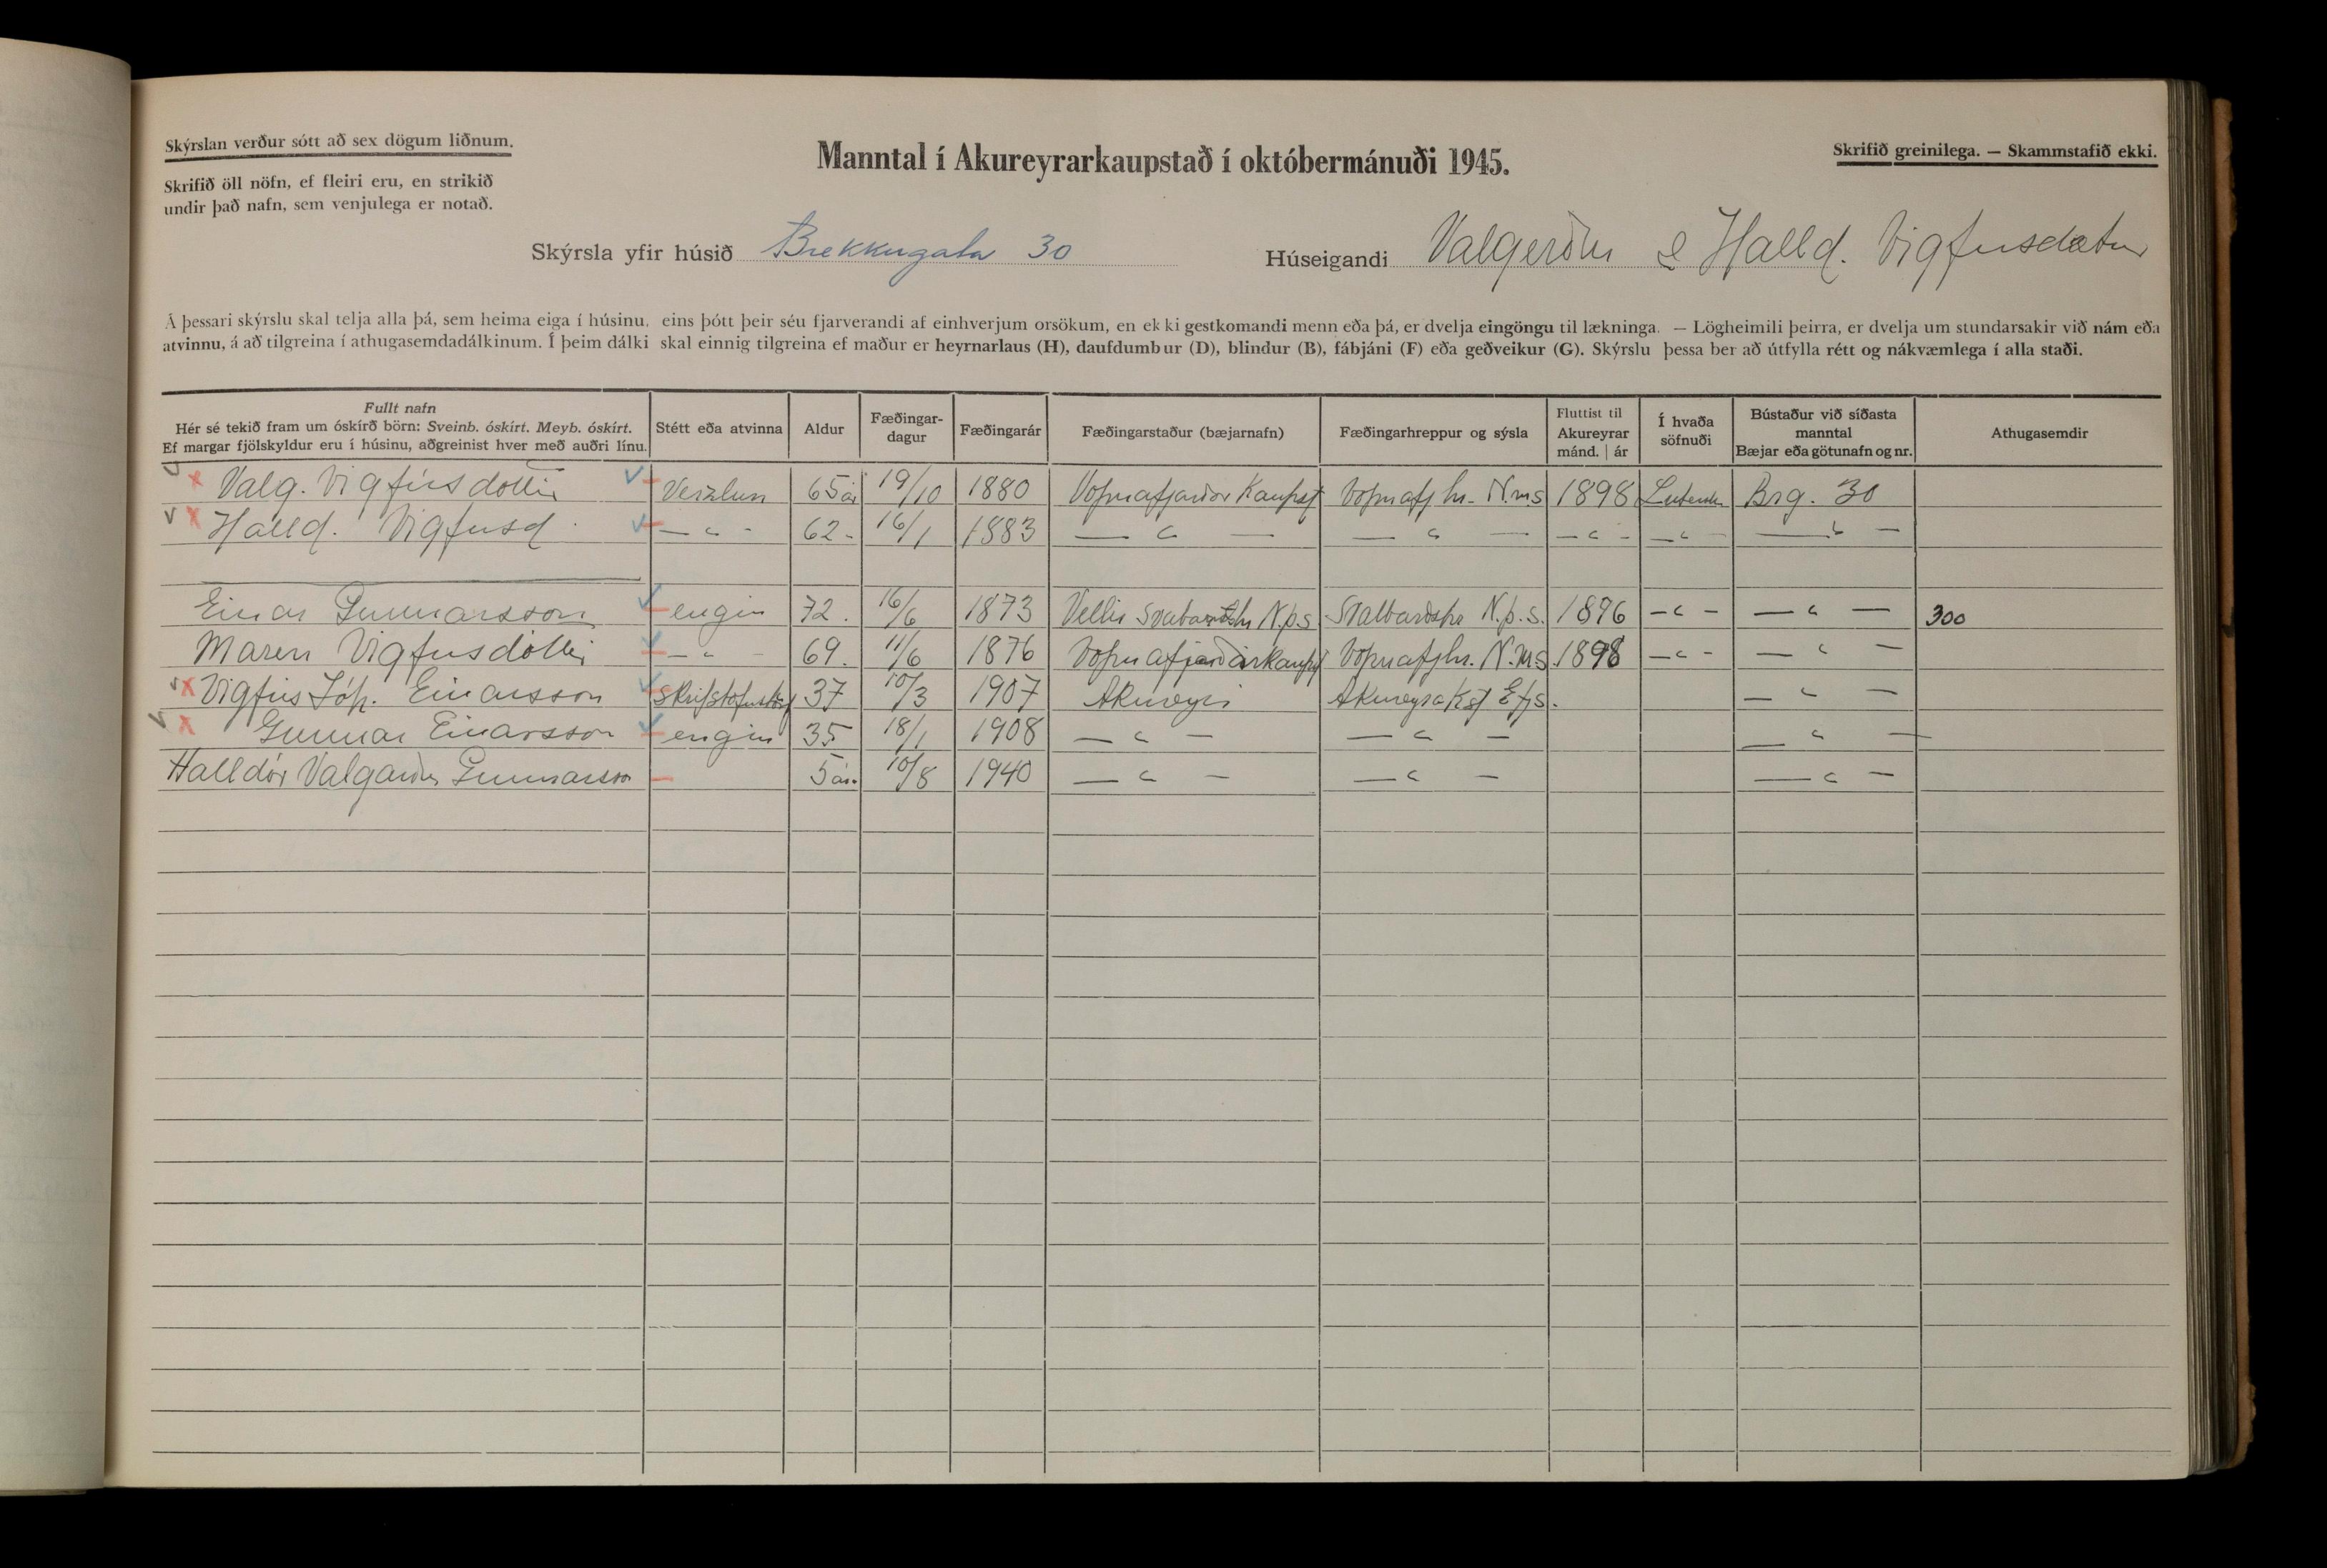 Skýrslan verður sótt að sex dögum liðnum.
Skrifið öll nöfn, ef fleiri eru, en strikið
undir það nafn, sem venjulega er notað.
Manntal í Akureyrarkaupstað í októbermánuði 1945.
Skrifið greinilega. — Skammstafið ekki.
Skýrsla yfir húsið Brekkugata 30 Húseigandi Valgerður & Halld. Vigfusdætur
Á þessari skýrslu skal telja alla þá, sem heima eiga í húsinu, eins þótt þeir séu fjarverandi af einhverjum orsökum, en ekki gestkomandi menn eða þá, er dvelja eingöngu til lækninga. — Lögheimili þeirra, er dvelja um stundarsakir við nám eða
atvinnu, á að tilgreina í athugasemdadálkinum. Í þeim dálki skal einnig tilgreina ef maður er heyrnarlaus (H), daufdumbur (D), blindur (B), fábjáni (F) eða geðveikur (G). Skýrslu þessa ber að útfylla rétt og nákvæmlega í alla staði.
Fullt nafn
Hér sé tekið fram um óskírð börn: Sveinb. óskírt. Meyb. óskírt.
Ef margar fjölskyldur eru í húsinu, aðgreinist hver með auðri línu.
Stétt eða atvinna
Aldur
Fæðingar-
dagur
Fæðingarár
Fæðingarstaður (bæjarnafn)
Fæðingarhreppur og sýsla
Fluttist til
Akureyrar
mánd. | ár
Í hvaða
söfnuði
Bústaður við síðasta
manntal
Bæjar eða götunafn og nr.
Athugasemdir
Valg. Vigfúsdóttir Verzlun 65 ár 19/10 1880 Vopnafjarðar Kaupst Vopnafj hr. N.m.s 1898 Brg. 30
Halld. Vigfusd. — " - 62 - 16/1 1883 — " — — " — — " - — " - — " —
Einar Gunnarsson engin 72. 16/6 1873 N.þ.s. Svalbarðshr N.þ.s. 1896 — " - — " — 300
Maren Vigfusdóttir — " - 69. 11/6 1876 Vopnafjarðarkaupst Vopnafjhr. N.M.S. 1898 — " - — " —
Vigfús Þór. Einarsson 37 10/3 1907 Akureyri Akureyra Kst Efs. — " —
Gunnar Einarsson engin 35 18/1 1908 — " — — " — — " —
Halldór Valgarður Gunnarsson 5 ár. 10/8 1940 — " — — " — — " —